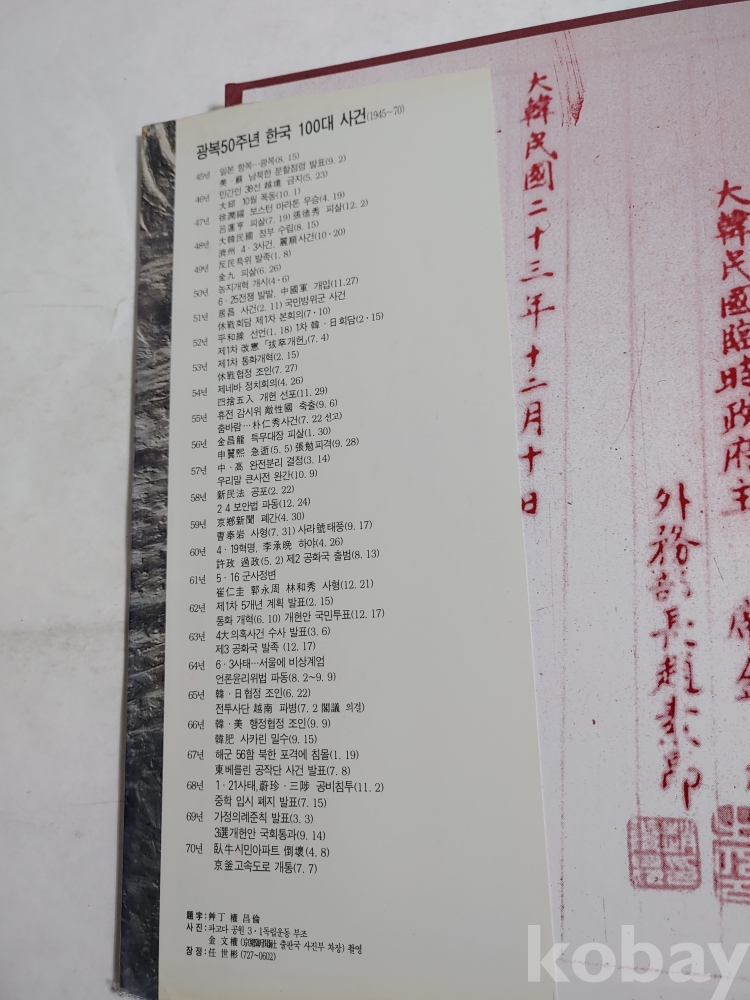 광복50주년 한국 100대 사건(1945~70)
45년 일본 항복…광복(8. 15)
美·蘇 남북한 분할점령 발표(9. 2)
46년 민간인 38선 越境 금지(5. 23)
大邱 10월 폭동(10. 1)
47년 徐潤福 보스턴 마라톤 우승(4. 19)
呂運亨 피살(7. 19) 張德秀 피살(12. 2)
48년 大韓民國 정부 수립(8. 15)
濟州 4·3사건, 麗順사건(10·20)
49년 反民특위 발족(1. 8)
金九 피살(6. 26)
50년 농지개혁 개시(4·6)
6·25전쟁 발발, 中國軍 개입(11.27)
51년 居昌 사건(2. 11) 국민방위군 사건
休戰회담 제1차 본회의(7·10)
52년 平和線 선언(1. 18) 1차 韓·日회담(2·15)
제1차 改憲「拔萃개헌」(7. 4)
53년 제1차 통화개혁(2. 15)
休戰협정 조인(7. 27)
54년 제네바 정치회의(4. 26)
四捨五入 개헌 선포(11. 29)
55년 휴전 감시위 敵性國 축출(9. 6)
춤바람…朴仁秀사건(7. 22 선고)
56년 金昌龍 특무대장 피살(1. 30)
申翼熙 急逝(5. 5) 張勉피격(9. 28)
57년 中·高 완전분리 결정(3. 14)
우리말 큰사전 완간(10. 9)
58년 新民法 공포(2. 22)
2 4 보안법 파동(12. 24)
59년 京鄕新聞 폐간(4. 30)
曺奉岩 사형(7. 31) 사라號태풍(9. 17)
60년 4·19혁명, 李承晩 하야(4. 26)
許政 過政(5. 2) 제2 공화국 출범(8. 13)
61년 5·16 군사정변
崔仁圭 郭永周 林和秀 사형(12. 21)
62년 제1차 5개년 계획 발표(2. 15)
통화 개혁(6. 10) 개헌안 국민투표(12. 17)
63년 4大의혹사건 수사 발표(3. 6)
제3 공화국 발족 (12. 17)
64년 6·3사태…서울에 비상계엄
언론윤리위법 파동(8. 2~9. 9)
65년 韓·日협정 조인(6. 22)
전투사단 越南 파병(7. 2 閣議 의결)
66년 韓·美 행정협정 조인(9. 9)
韓肥 사카린 밀수(9. 15)
67년 해군 56함 북한 포격에 침몰(1. 19)
東베를린 공작단 사건 발표(7. 8)
68년 1·21사태, 蔚珍·三陟 공비침투(11. 2)
중학 입시 폐지 발표(7. 15)
69년 가정의례준칙 발표(3. 3)
3選개헌안 국회통과(9. 14)
70년 臥牛시민아파트 倒壞(4. 8)
京釜고속도로 개통(7. 7)
題字:艸丁 權昌倫
사진:파고다 공원 3·1독립운동 부조
金文權(京鄕新聞社 출판국 사진부 차장) 촬영
장정:任世彬(727~0602)
大韓民國二十三年十二月十日
大韓民國臨時政府主
外務部長趙素昻
kobay